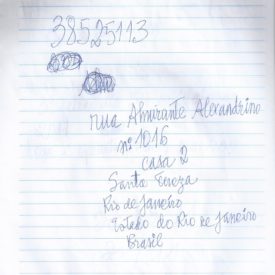 38525113
rua Almirante Alexandrino
nº 1016
casa 2
Santa Tereza
Rio de Janeiro
Estado do Rio de Janeiro
Brasil